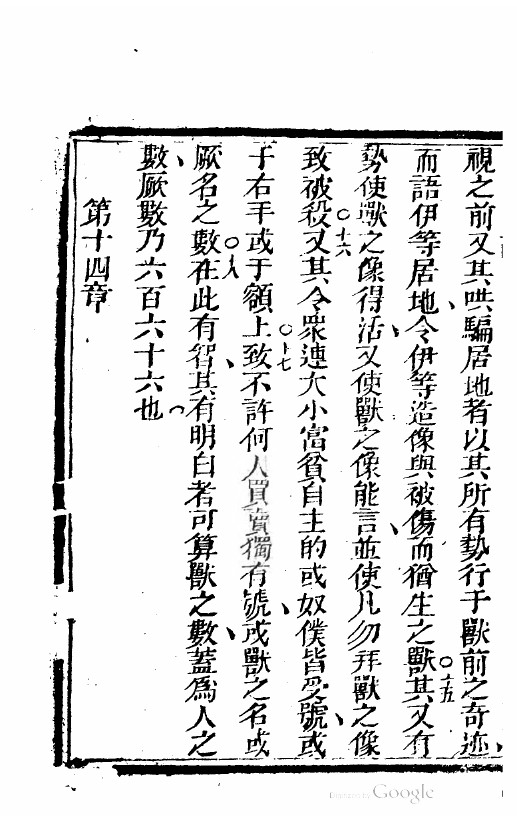 視之前又其哄騙居地者以其所有勢行于獸前之奇迹、
而語伊等居地、令伊等造像與被傷而猶生之獸○十五其又有
勢使獸○十六之像得活、又使獸之像能言、並使凡勿拜獸之像
致被殺又其令衆○十七連大小富貧自主的或奴僕、皆受號、或
于右手或于額上致不許何人買賣獨有號或獸之名或
厥名之數○十八在此有智、其有明白者可算獸之數、蓋為人之
數、厥數乃六百六十六也
第十四章
Digitized by Google